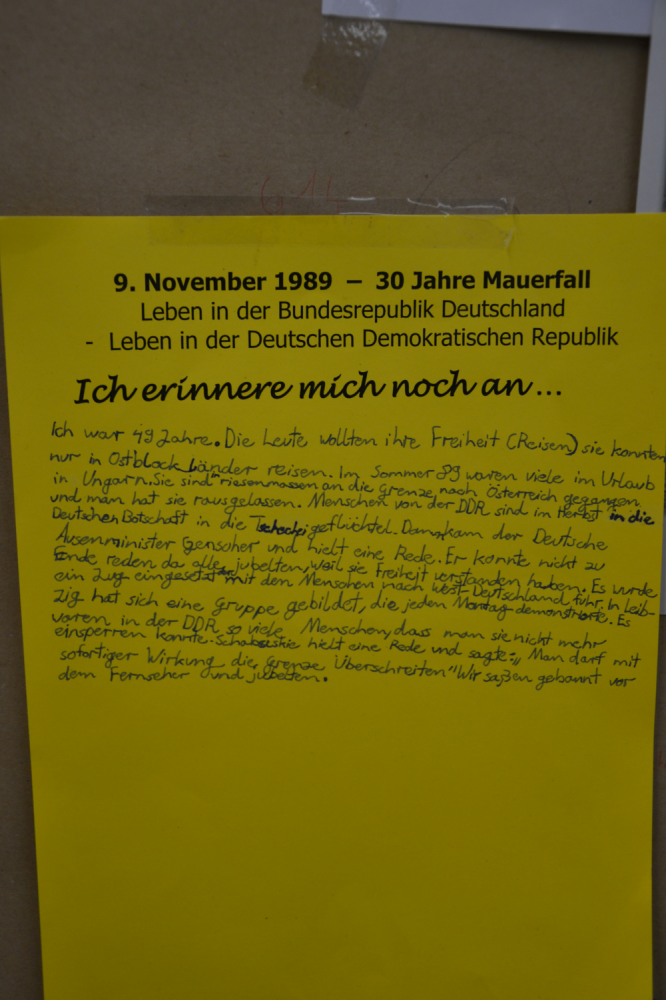 9. November 1989 – 30 Jahre Mauerfall
Leben in der Bundesrepublik Deutschland
- Leben in der Deutschen Demokratischen Republik
Ich erinnere mich noch an...
Ich war 49 Jahre. Die Leute wollten ihre Freiheit (Reisen) sie konnten
nur in Ostblock Länder reisen. Im Sommer 89 waren viele im Urlaub
in Ungarn. Sie sind in riesenmassen an die Grenze nach Österreich gegangen
und man hat sie rausgelassen. Menschen von der DDR sind im Herbst in die
Deutschen Botschaft in die geflüchtet. Dann kam der Deutsche
Ausenminister Genscher und hielt eine Rede. Er konnte nicht zu
Ende reden da alle jubelten, weil sie Freiheit verstanden haben. Es wurde
ein Zug eingesetzt der mit den Menschen nach West-Deutschland führ. In Leib-
zig hat sich eine Gruppe gebildet, die jeden Montag demonstrierte. Es
waren in der DDR so viele Menschen, dass man sie nicht mehr
einsperren konnte. Schabuskie hielt eine Rede und sagte: „ Man darf mit
sofortiger Wirkung die Grenze Überschreiten" Wir saßen gebannt vor
dem Fernseher und jubelten.